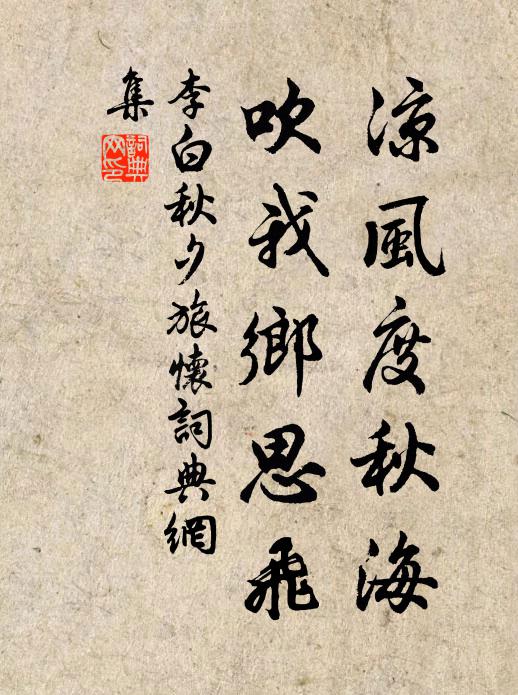 涼風度秋海
吹我鄉思飛
李白秋夕旅懷詞典網
集
詞典
网印